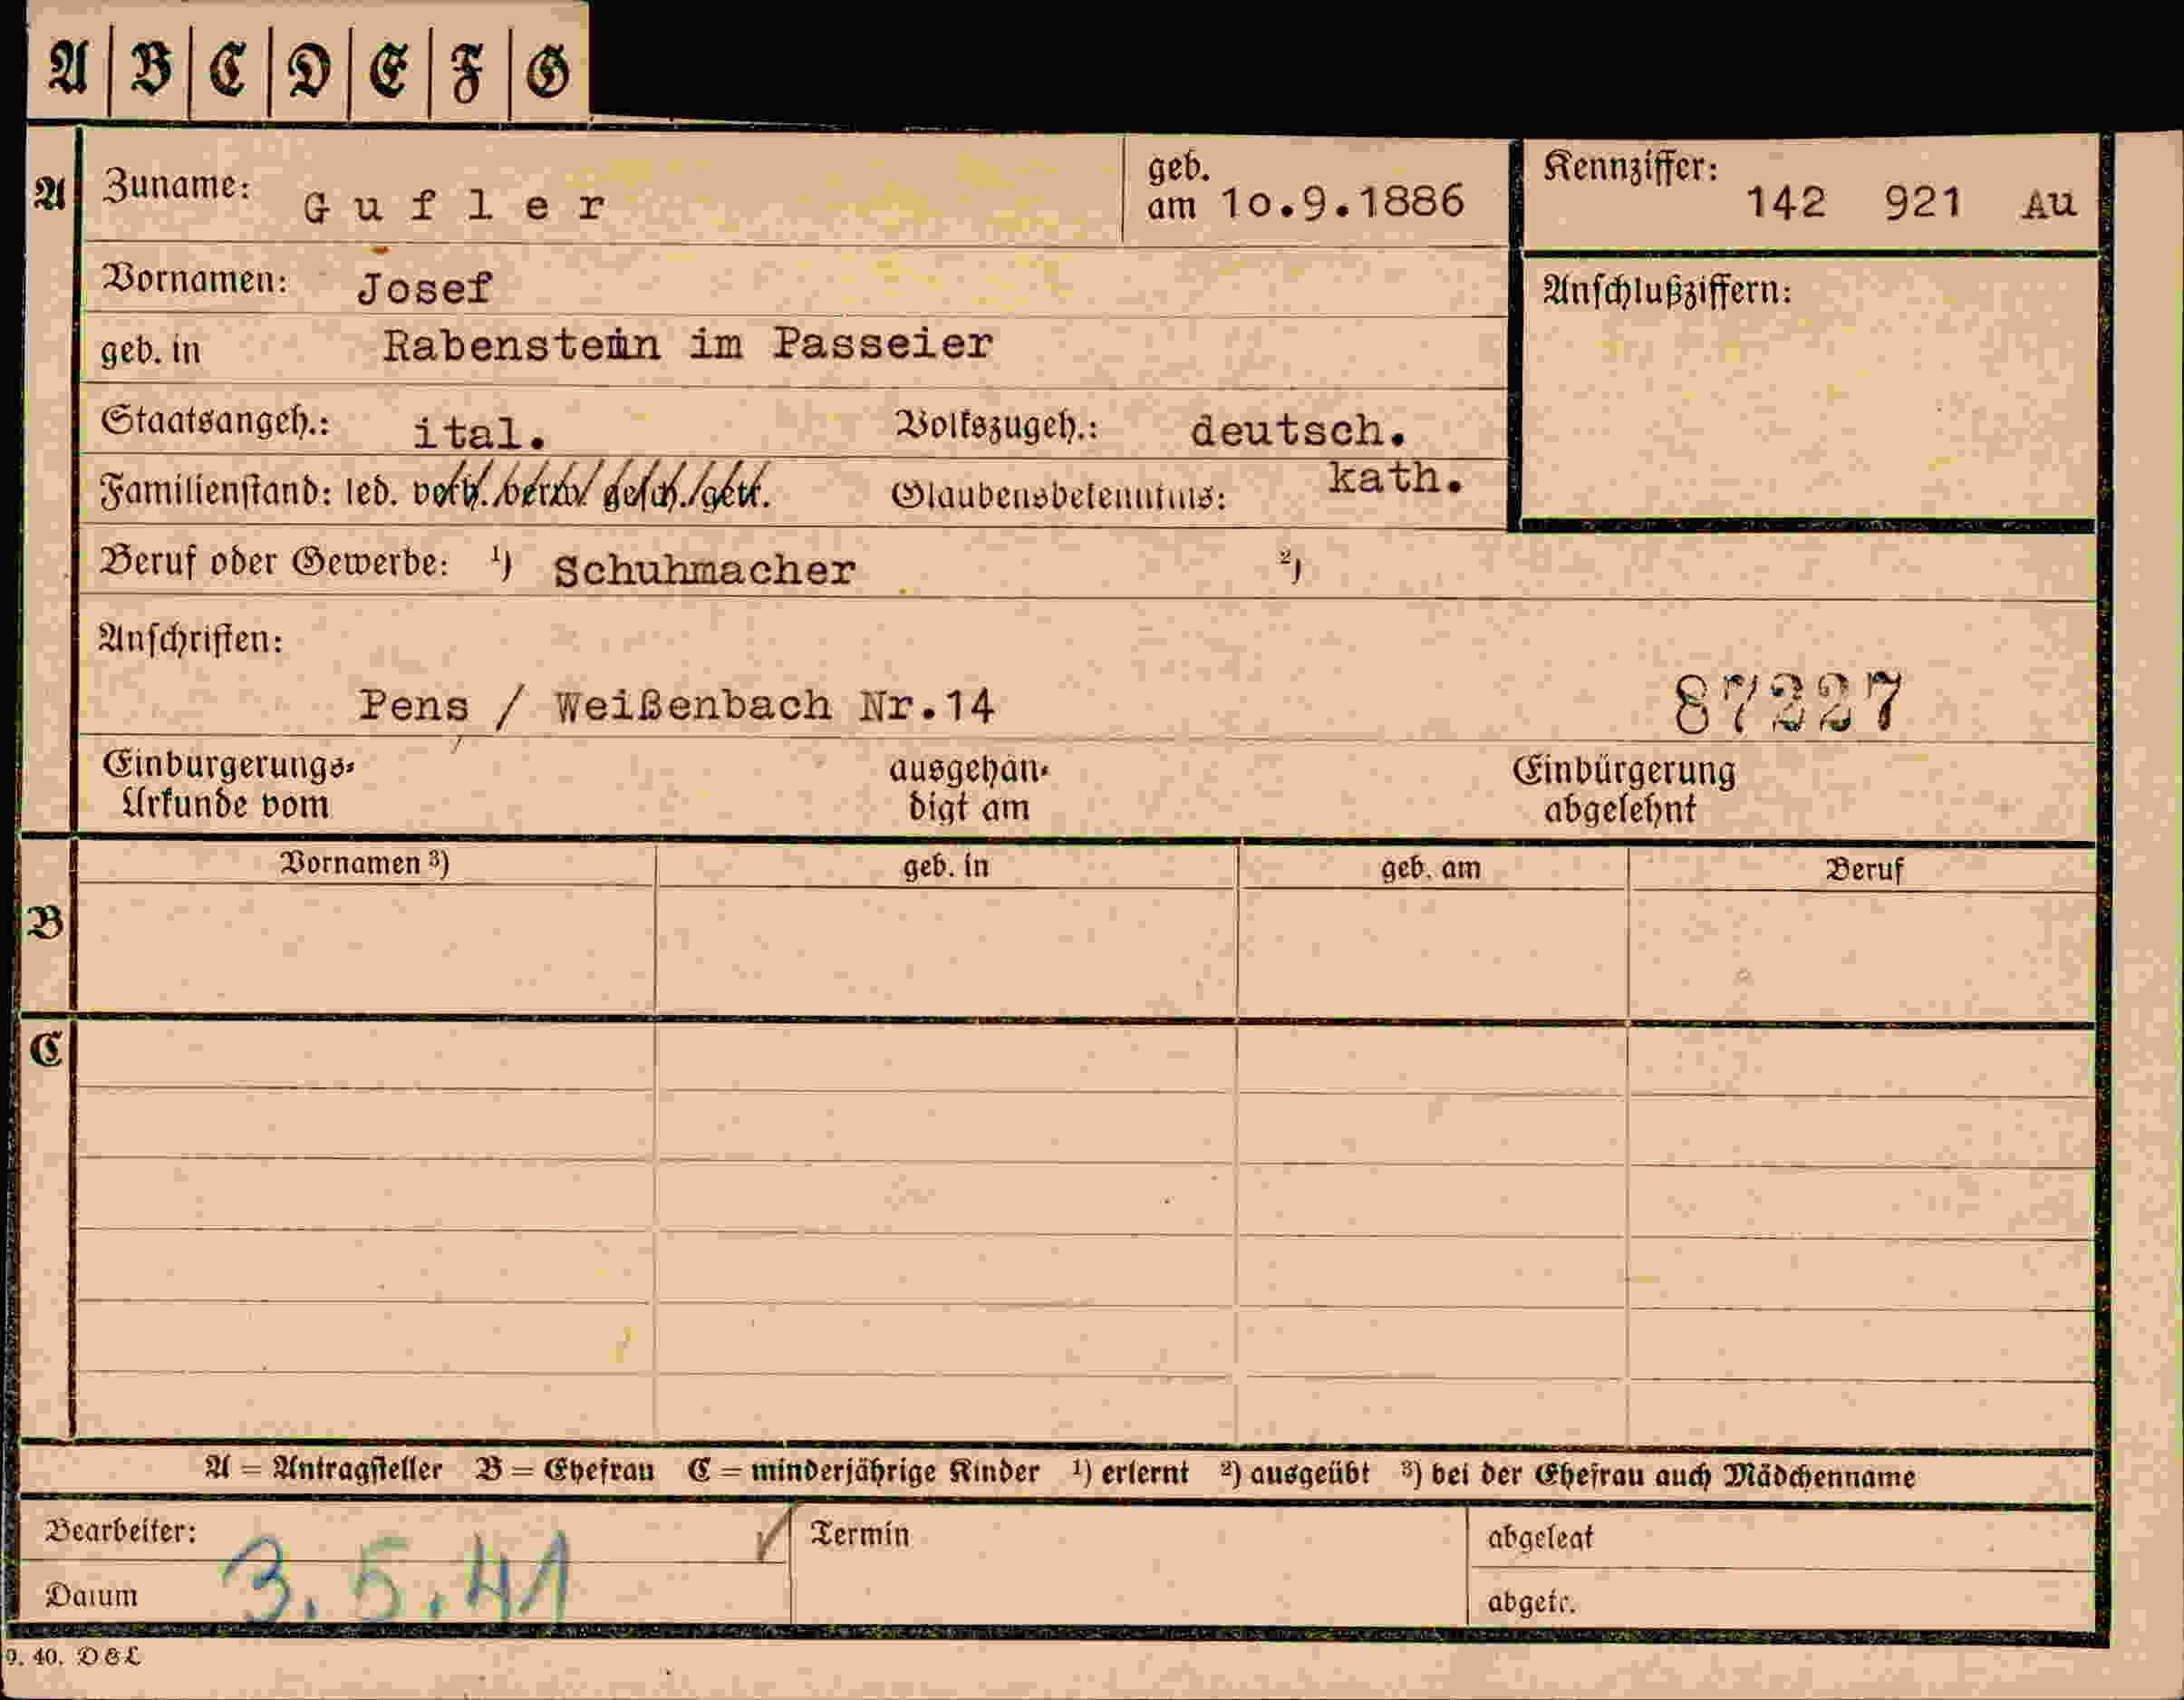 A B C D E F G
A Zuname: Gufler geb. am 10.9.1886 Kennziffer: 142 921 Au
Vornamen: Josef Anschlußziffern:
geb. in Rabenstein im Passeier
Staatsangeh.: ital. Volkszugeh.: deutsch.
Familienstand: led. verh./verw./gesch./getr. Glaubensbekenntnis: kath.
Beruf oder Gewerbe: ¹) Schuhmacher ²)
Anschriften:
Pens / Weißenbach Nr.14 87227
Einbürgerungs- ausgehän- Einbürgerung
Urkunde vom digt am abgelehnt
Vornamen ³) geb. in geb. am Beruf
B
C
A = Antragsteller B = Ehefrau C = minderjährige Kinder ¹) erlernt ²) ausgeübt ³) bei der Ehefrau auch Mädchenname
Bearbeiter: Termin abgelegt
Datum 3.5.41 abgetr.
9. 40. D&L